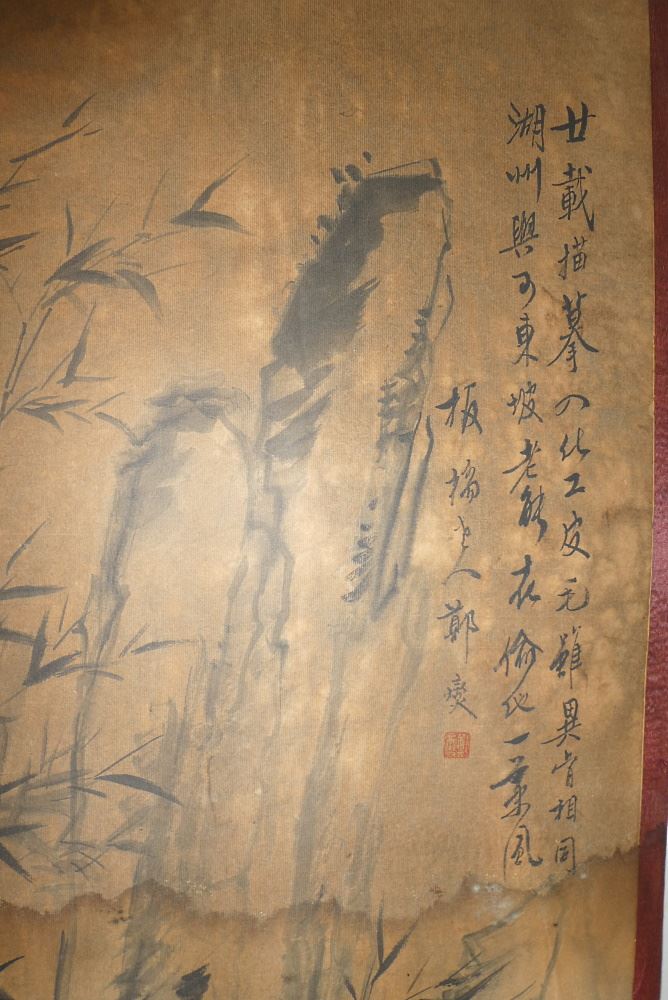 廿載描摹入化工皮毛雖異骨相同
湖州與可東坡老能在偷他一葉風
板橋老人鄭燮